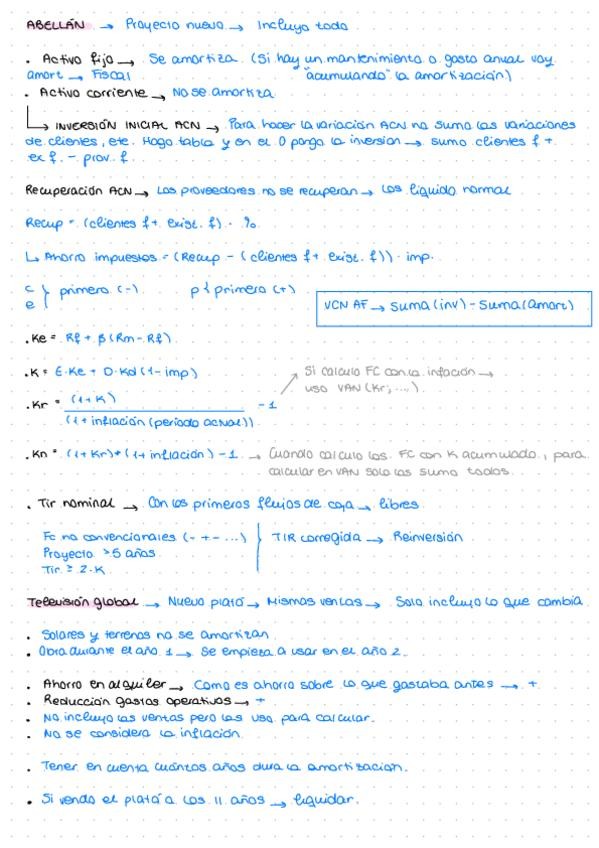 ABELLÁN → Proyecto nuevo → Incluyo todo
• Activo fijo → Se amortiza (Si hay un mantenimiento o gasto anual voy
amort → Fiscal "acumulando" la amortización)
• Activo corriente → No se amortiza
↳ INVERSIÓN INICIAL ACN → Para hacer la variación ACN no sumo las variaciones
de clientes, etc. Hago tabla y en el 0 pongo la inversion → sumo clientes f +
ex f. - prov. f.
Recuperación ACN → Los proveedores no se recuperan → Los liquido normal
Recup = (clientes f + exist. f) · %
↳ Ahorro impuestos = (Recup - (clientes f + exist. f)) · imp.
c
e } primero (-) p { primero (+)
VCN AF → Suma (inv) - Suma (amort)
• Ke = Rf + β (Rm - Rf)
• K = E·Ke + D·Kd (1 - imp)
Si calculo FC con la inflación →
uso VAN (Kr; ....)
• Kr = (1+K) / (1+ inflación (periodo actual)) - 1
• Kn = (1+ Kr)*(1+ inflación) - 1 → Cuando calculo los FC con K acumulado, para
calcular en VAN solo los sumo todos.
• Tir nominal → Con los primeros flujos de caja → libres
Fc no convencionales (- + - ...)
Proyecto > 5 años
Tir ≥ 2·K
} TIR corregida → Reinversión
Televisión global → Nuevo plató → Mismas ventas → Solo incluyo lo que cambia
• Solares y terrenos no se amortizan
• Obra durante el año 1 → Se empieza a usar en el año 2
• Ahorro en alquiler → Como es ahorro sobre lo que gastaba antes → +
• Reducción gastos operativos → +
• No incluyo las ventas pero las uso para calcular.
• No se considera la inflación
• Tener en cuenta cuántos años dura la amortización.
• Si vendo el plató a los 11 años → liquidar.